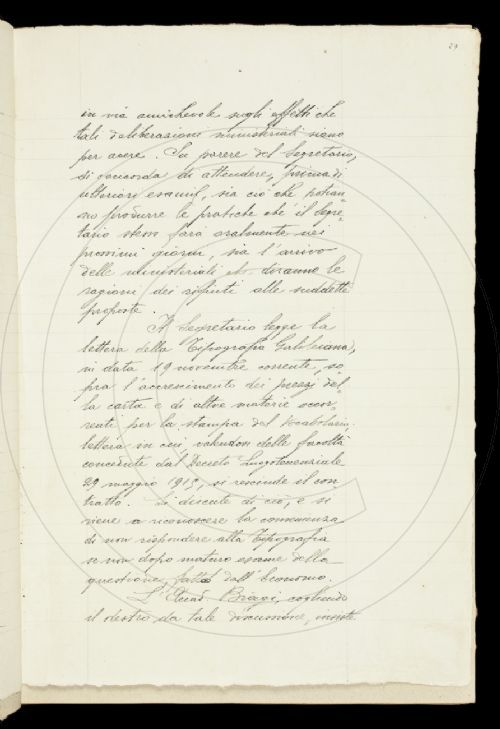 29
in via amichevole sugli effetti che
tali deliberazione ministeriali siano
per avere. Su parere del Segretario,
si concorda di attendere, prima di
ulteriori esami, sia ciò che potran=
no produrre le pratiche che il Segre=
tario stesso farà oralmente nei
prossimi giorni, sia l'arrivo
delle ministeriali che daranno le
ragioni dei rifiuti alle suddette
proposte.
Il Segretario legge la
lettera della Tipografia Galileiana,
in data 19 novembre corrente, so
pra l'accrescimento dei prezzi del=
la carta e di altre materie occor=
renti per la stampa del Vocabolario;
lettera in cui valendosi delle facoltà
concedute dal Decreto Luogotenenziale
29 maggio 1917, si rescinde il con
tratto. Si discute di ciò, e si
viene a riconoscere la convenienza
di non rispondere alla Tipografia
se non dopo maturo esame della
questione, fatto dall'Economo.
L'Accad. Biagi, cogliendo
il destro da tale discussione, insiste